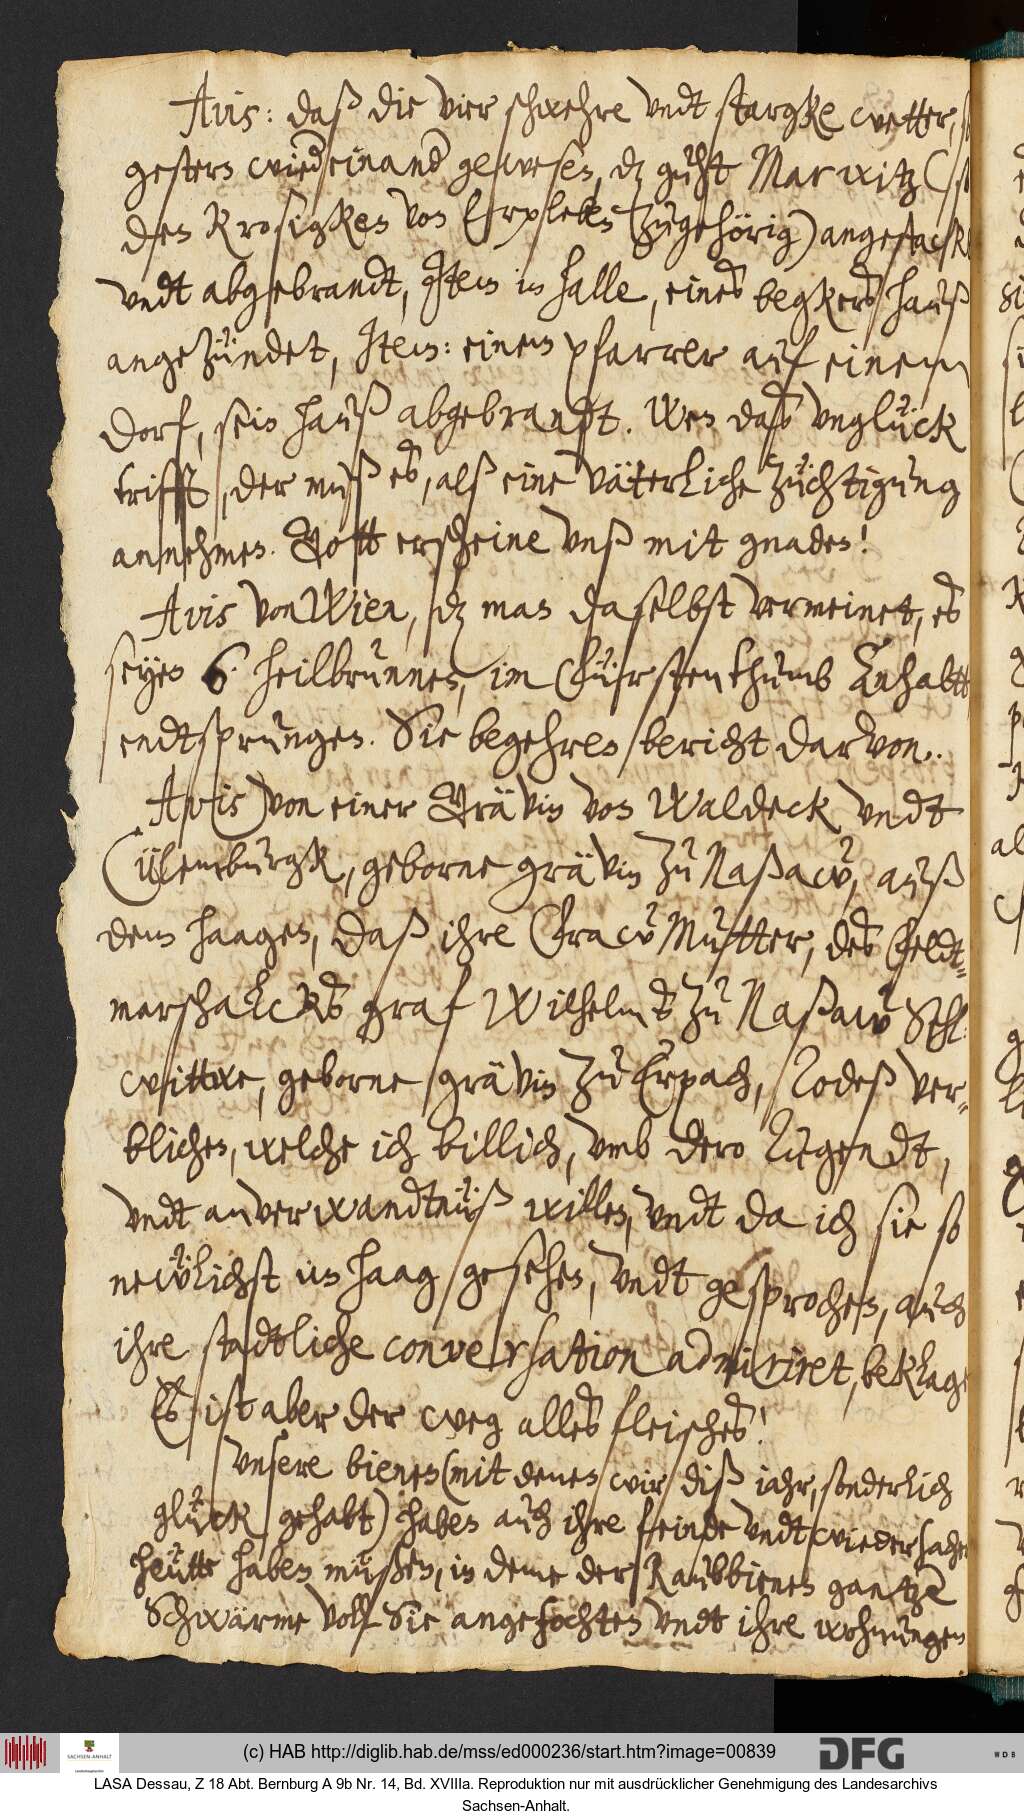 Avis: daß die vier schwehre vndt stargke wetter,
gestern wiedereinander gewesen, dz guht Marwitz (
den Krosigken von Erxleben zugehörig) angesteckt
vndt abgebrandt, Item in Halle, eines begkers hauß
angezündet, Item: einem pfarrer auf einem
dorf, sein hauß abgebrandt. Wen daß vnglück
trifft, der muß es, alß eine väterliche züchtigung
annehmen. Gott erscheine vnß mit gnaden!
Avis von Wien, dz man daselbst vermeinet, es
seyen 6. heilbrunnen, im Fürstenthumb Anhaltt
endtsprungen. Sie begehren bericht darvon.
Avis von einer Grävin von Waldeck vndt
Cülemburgk, geborne grävin zu Naßaw, auß
dem Haagen, daß ihre Fraw Mutter, des Feldt-
marschalcks graf Wilhelms zu Naßaw Sehl:
wittwe, geborne grävin zu Erpach, Todeß ver-
blichen, welche ich billich, vmb dero Tugendt,
vndt anverwandtnüß willen, vndt da ich sie so
newlichst im Haag gesehen, vndt gesprochen, auch
ihre stadtliche conversation admiriret, beklage
Es ist aber der weg alles fleisches!
Vnsere bienen (mit denen wir diß iahr, sonderlich
glück gehabt) haben auch ihre feinde vndt wiedersacher
heütte haben müßen, in deme der Raubbienen gantze
Schwärme voll Sie angefochten vndt ihre wohnungen
(c) HAB http://diglib.hab.de/mss/ed000236/start.htm?image=00839
DFG
WDB
SACHSEN-ANHALT
LASA Dessau, Z 18 Abt. Bernburg A 9b Nr. 14, Bd. XVIIIa. Reproduktion nur mit ausdrücklicher Genehmigung des Landesarchivs
Sachsen-Anhalt.